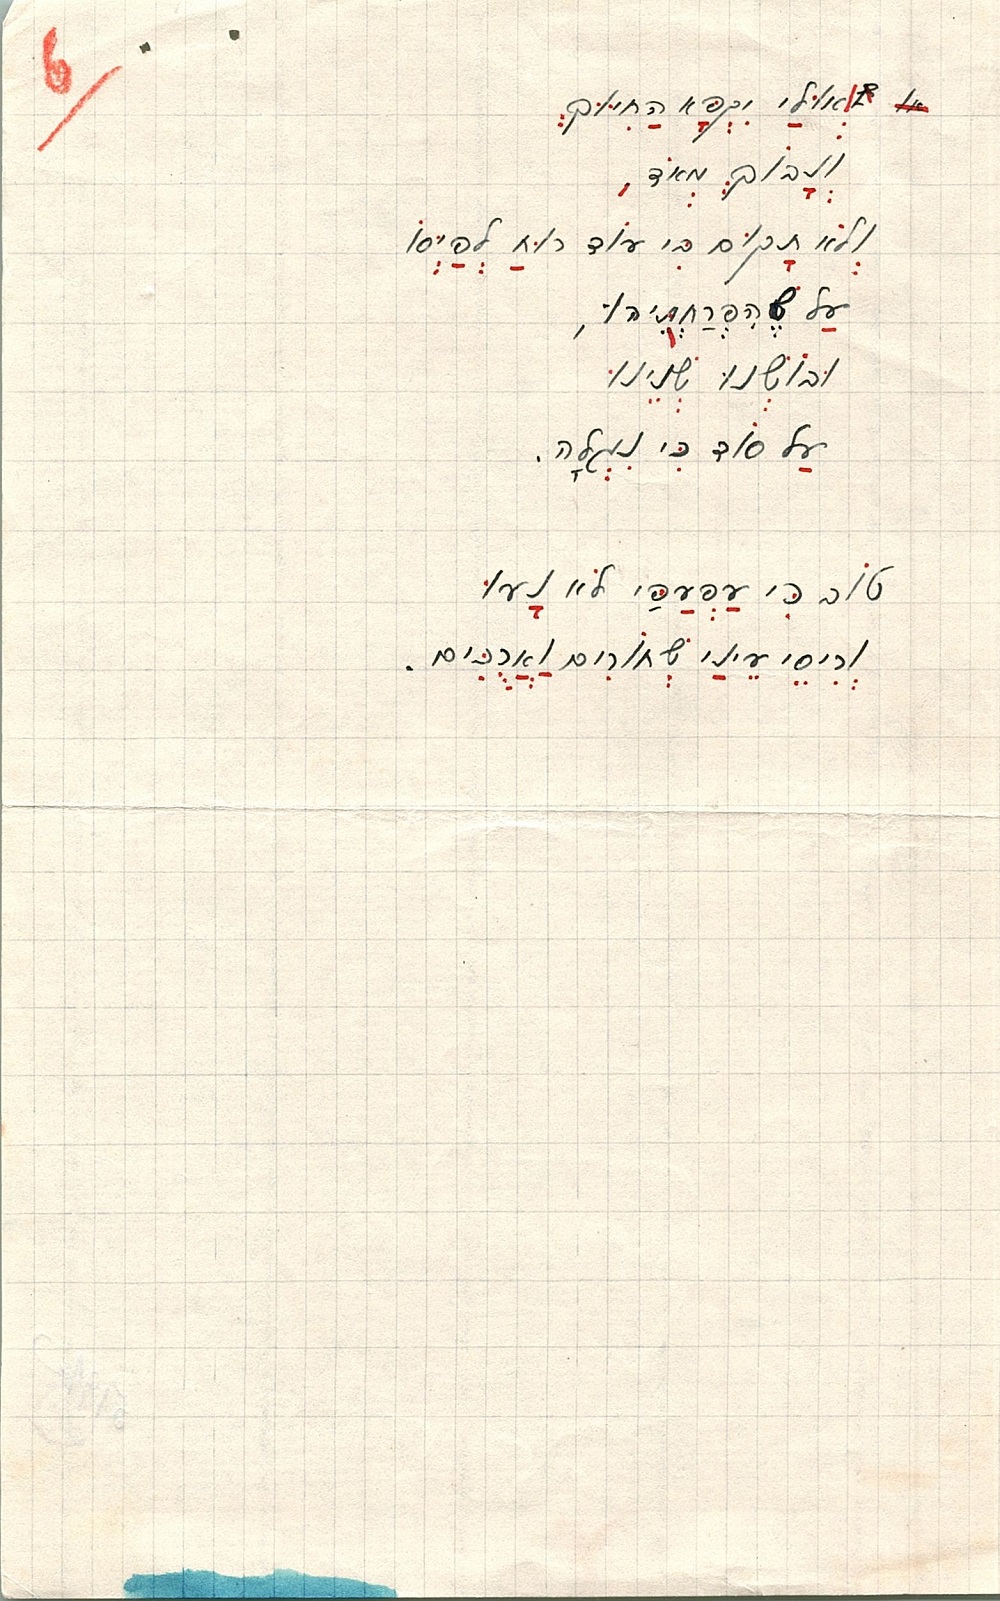 6/
אוּלַי יִקְפָּא הַחִיּוּךְ
וְנָבוֹךְ מְאֹד,
וְלֹא תָקוּם בִּי עוֹד רוּחַ לְפַיְּסוֹ
עַל שֶׁהִפְרַחְתִּיהוּ,
וּבוֹשְׁנוּ שְׁנֵינוּ
עַל סוֹד כִּי נִגְלָה.
טוֹב כִּי עַפְעַפַּי לֹא נָעוּ
וְרִיסֵי עֵינַי שְׁחוֹרִים וַאֲרֻכִּים.